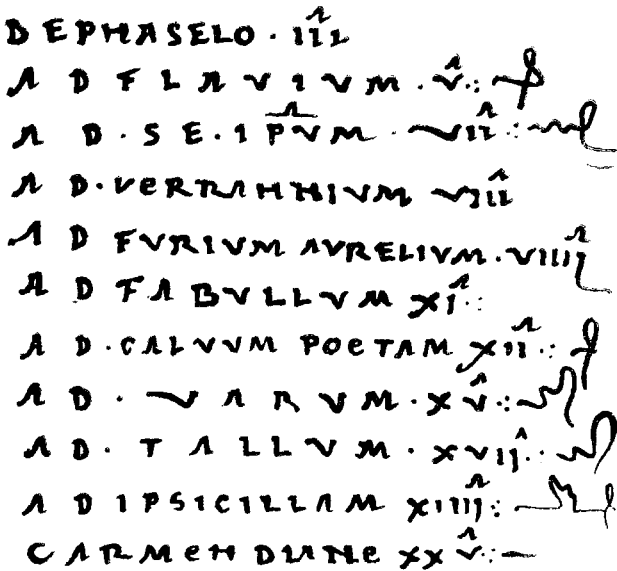 DE PHASELO · III
AD FLAVIVM · V
AD · SE · IPVM · VII
AD · VERRANNIVM VIII
AD FVRIVM AVRELIVM · VIIII
AD FABVLLVM XI
AD · CALVVM POETAM XII
AD · VARVM · XV
AD · TALLVM · XVII
AD IPSICILLAM XIIII
CARMEN DIANE XXV